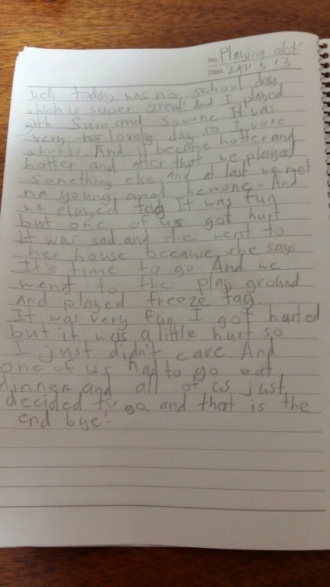 No. Playing abt'
Date. 2011 5 13
Well today was no school day
which is super great! And I played
with Sum and It was
very lovely day so I wore
And it become hotter and
hotter and after that we played
something else and at last we met
na young and And
we played tag It was fun
but one of us got hurt
It was sad and she went to
her house because she says
It's time to go. And we
went to the play ground
And played freeze tag
It was very fun I got hurted
but it was a little hurt so
I just didn't care. And
one of us had to go eat
dinner and all of us just
decided to go. and that is the
end bye!